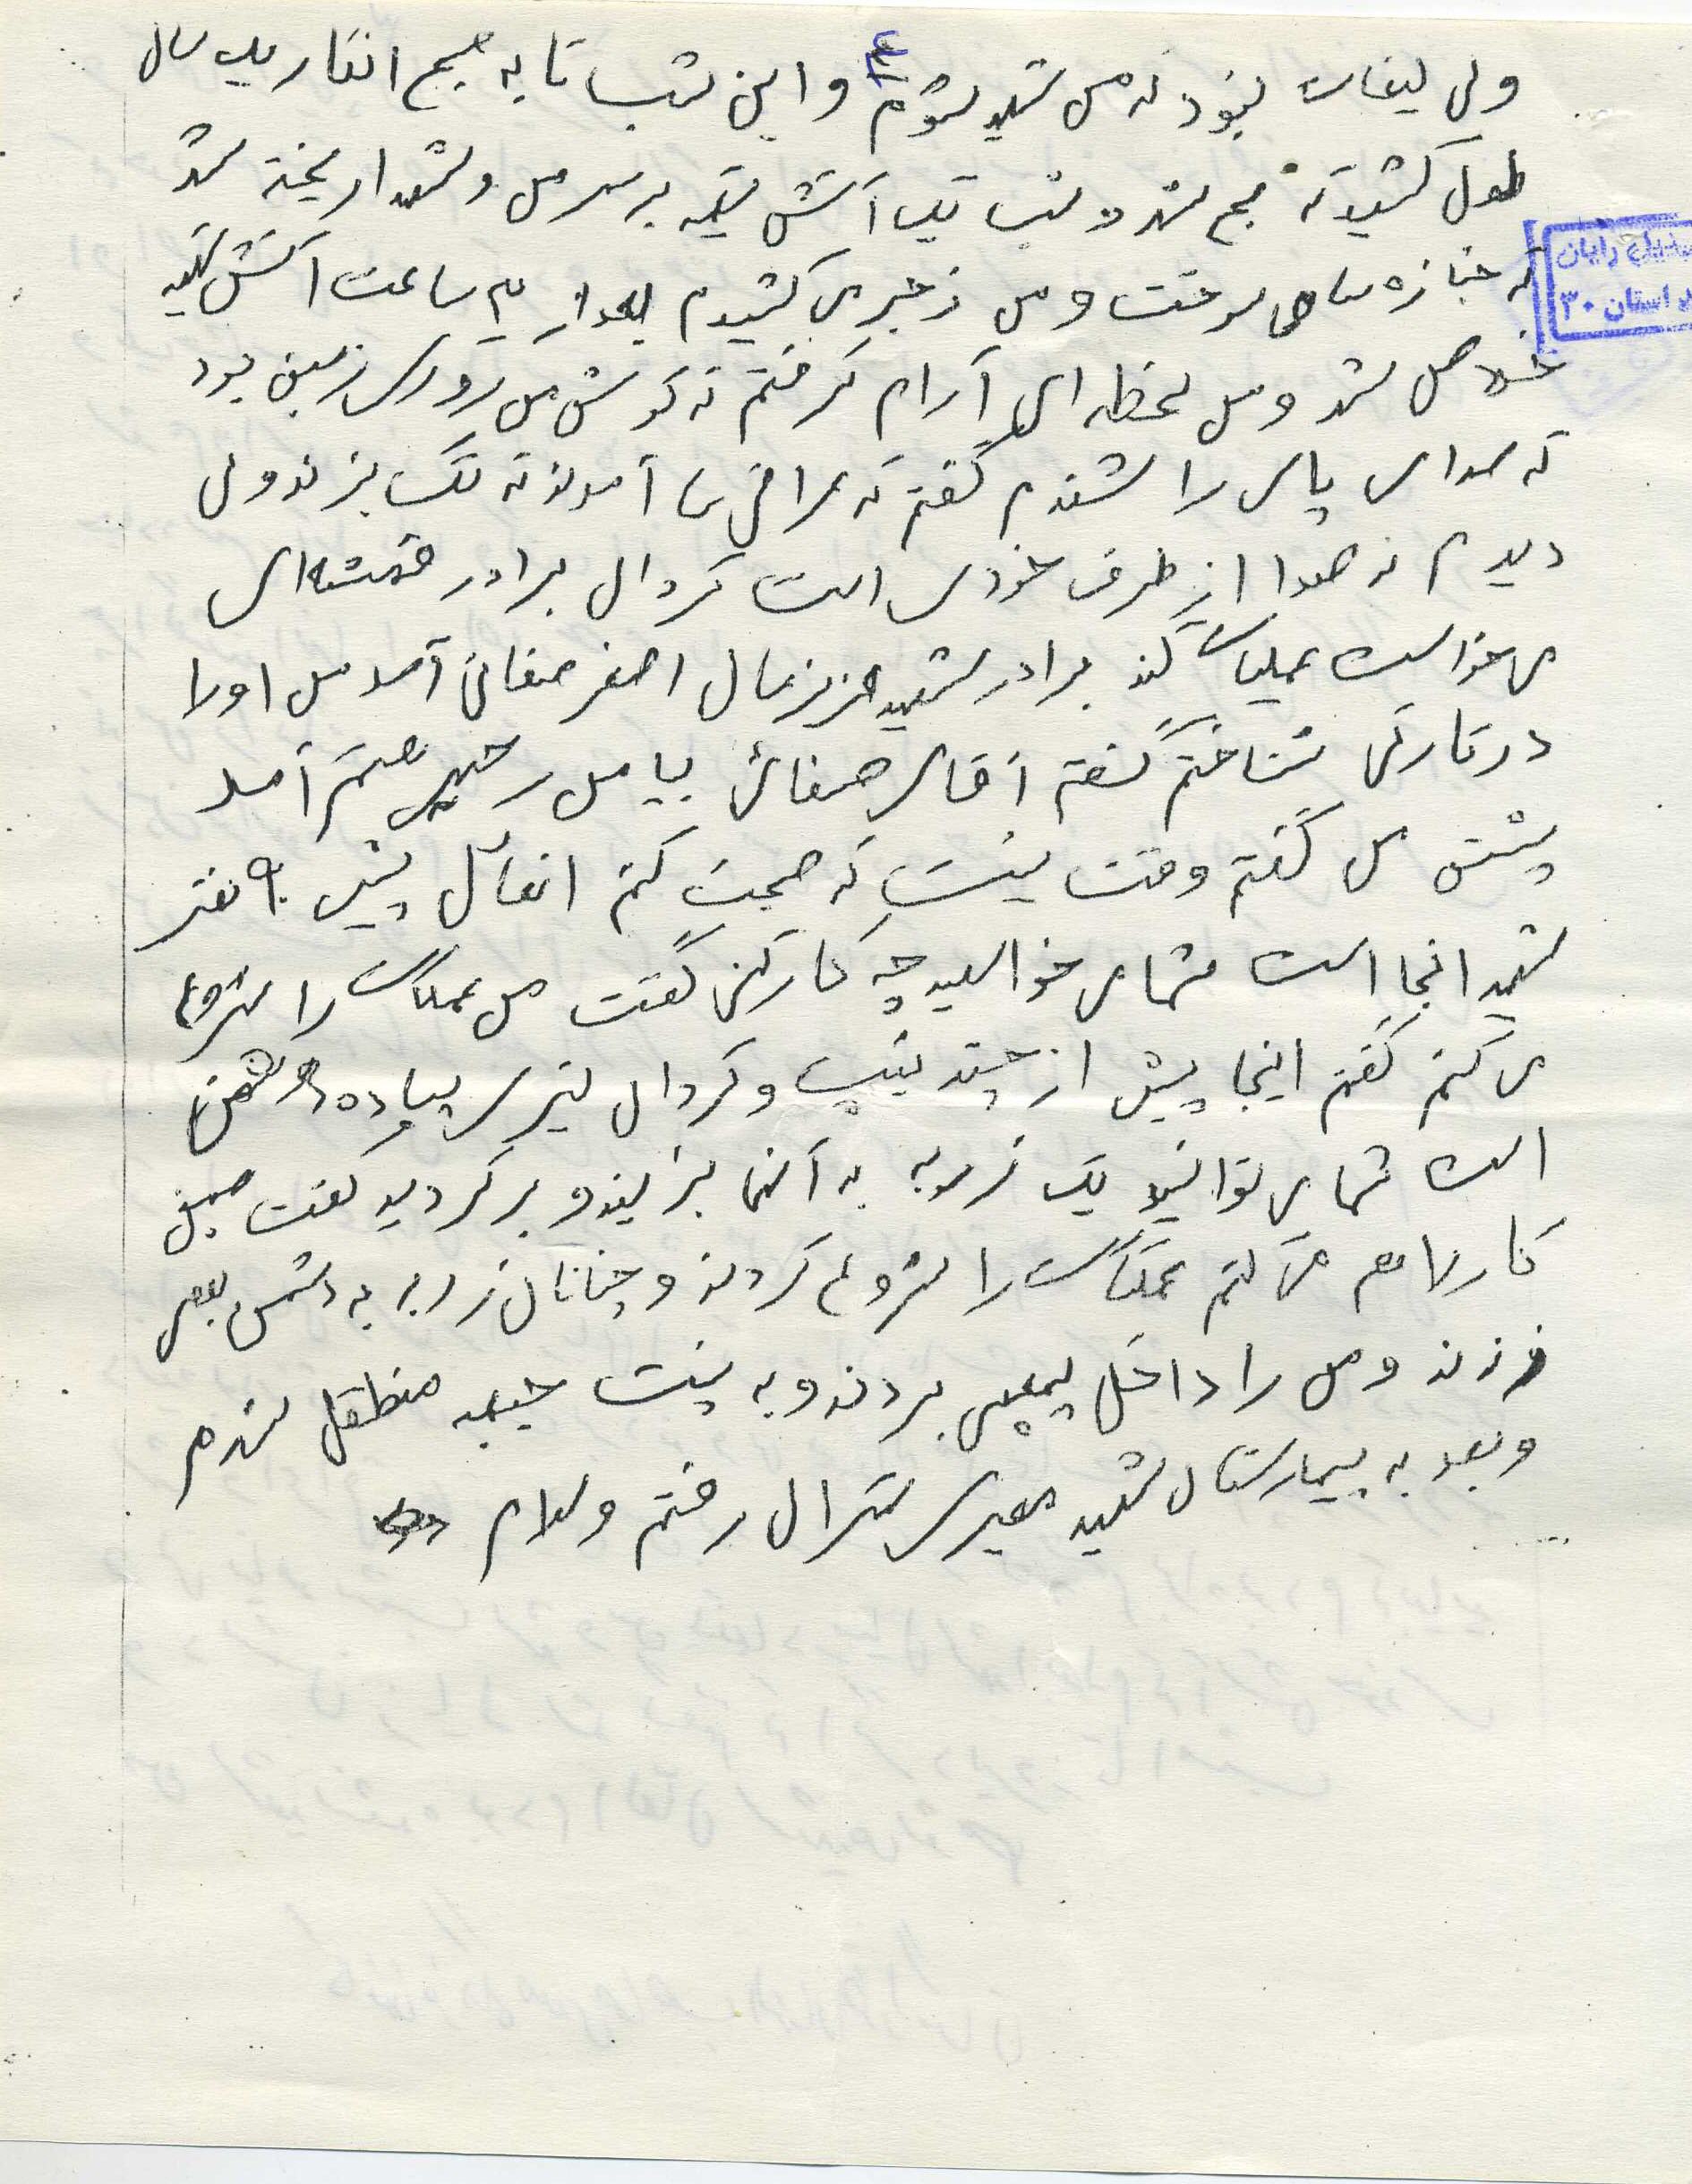 ۴
ولی لیغات نبود که من شهید شوم و این شب تا به صبح انگار یک سال
طول کشید که صبح شد و شب یک آتش تهیه بر سر من و شهدا ریخته شد
که جنازه ها می سوخت و من زجر می کشیدم بعد از ۲ ساعت آتش تهیه
خلاص شد و من لحظه ای آرام گرفتم که گوش من رو زمین بود
که صدای پای را شندم گفتم که عراقی ها آمدند که تک بزنند ولی
دیدم که صدا از طرف خودی است گردان برادر
می خواست عملیات کند برادر شهید عزیزمان اصغر صفائی آمد من او را
در تاریکی شناختم گفتم آقای صفائی بیا من رحیمی هستم آمد
پیش من گفتم وقت نیست که صحبت کنم الفعال پیش ۹۰ نفر
شهید اینجا است شما می خواهید چه کار کنی گفت من عملیات را شروع
می کنم گفتم اینجا پیش از چند تیپ و گردان نیروی پیاده دشمن
است شما می توانید یک زربه به آنها بزنید و برگردید گفت همین
کار را هم می کنم عملیات را شروع کردند و چنانان زربه به دشمن بعثی
زدند و من را داخل پمپی بردند و به پشت جبهه منطقل شدم
و بعد به بیمارستان شهید رفتم والسلام
رایان
استان ۳۰